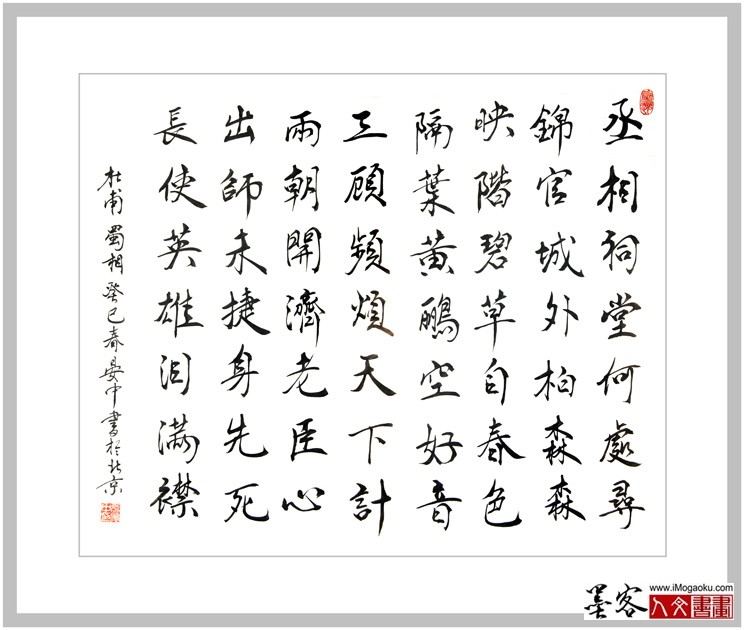 丞相祠堂何處尋
錦官城外柏森森
映階碧草自春色
隔葉黃鸝空好音
三顧頻煩天下計
兩朝開濟老臣心
出師未捷身先死
長使英雄泪滿襟
杜甫蜀相癸巳春晏中書於北京
墨客
www.iMogaoku.com
人文書畫